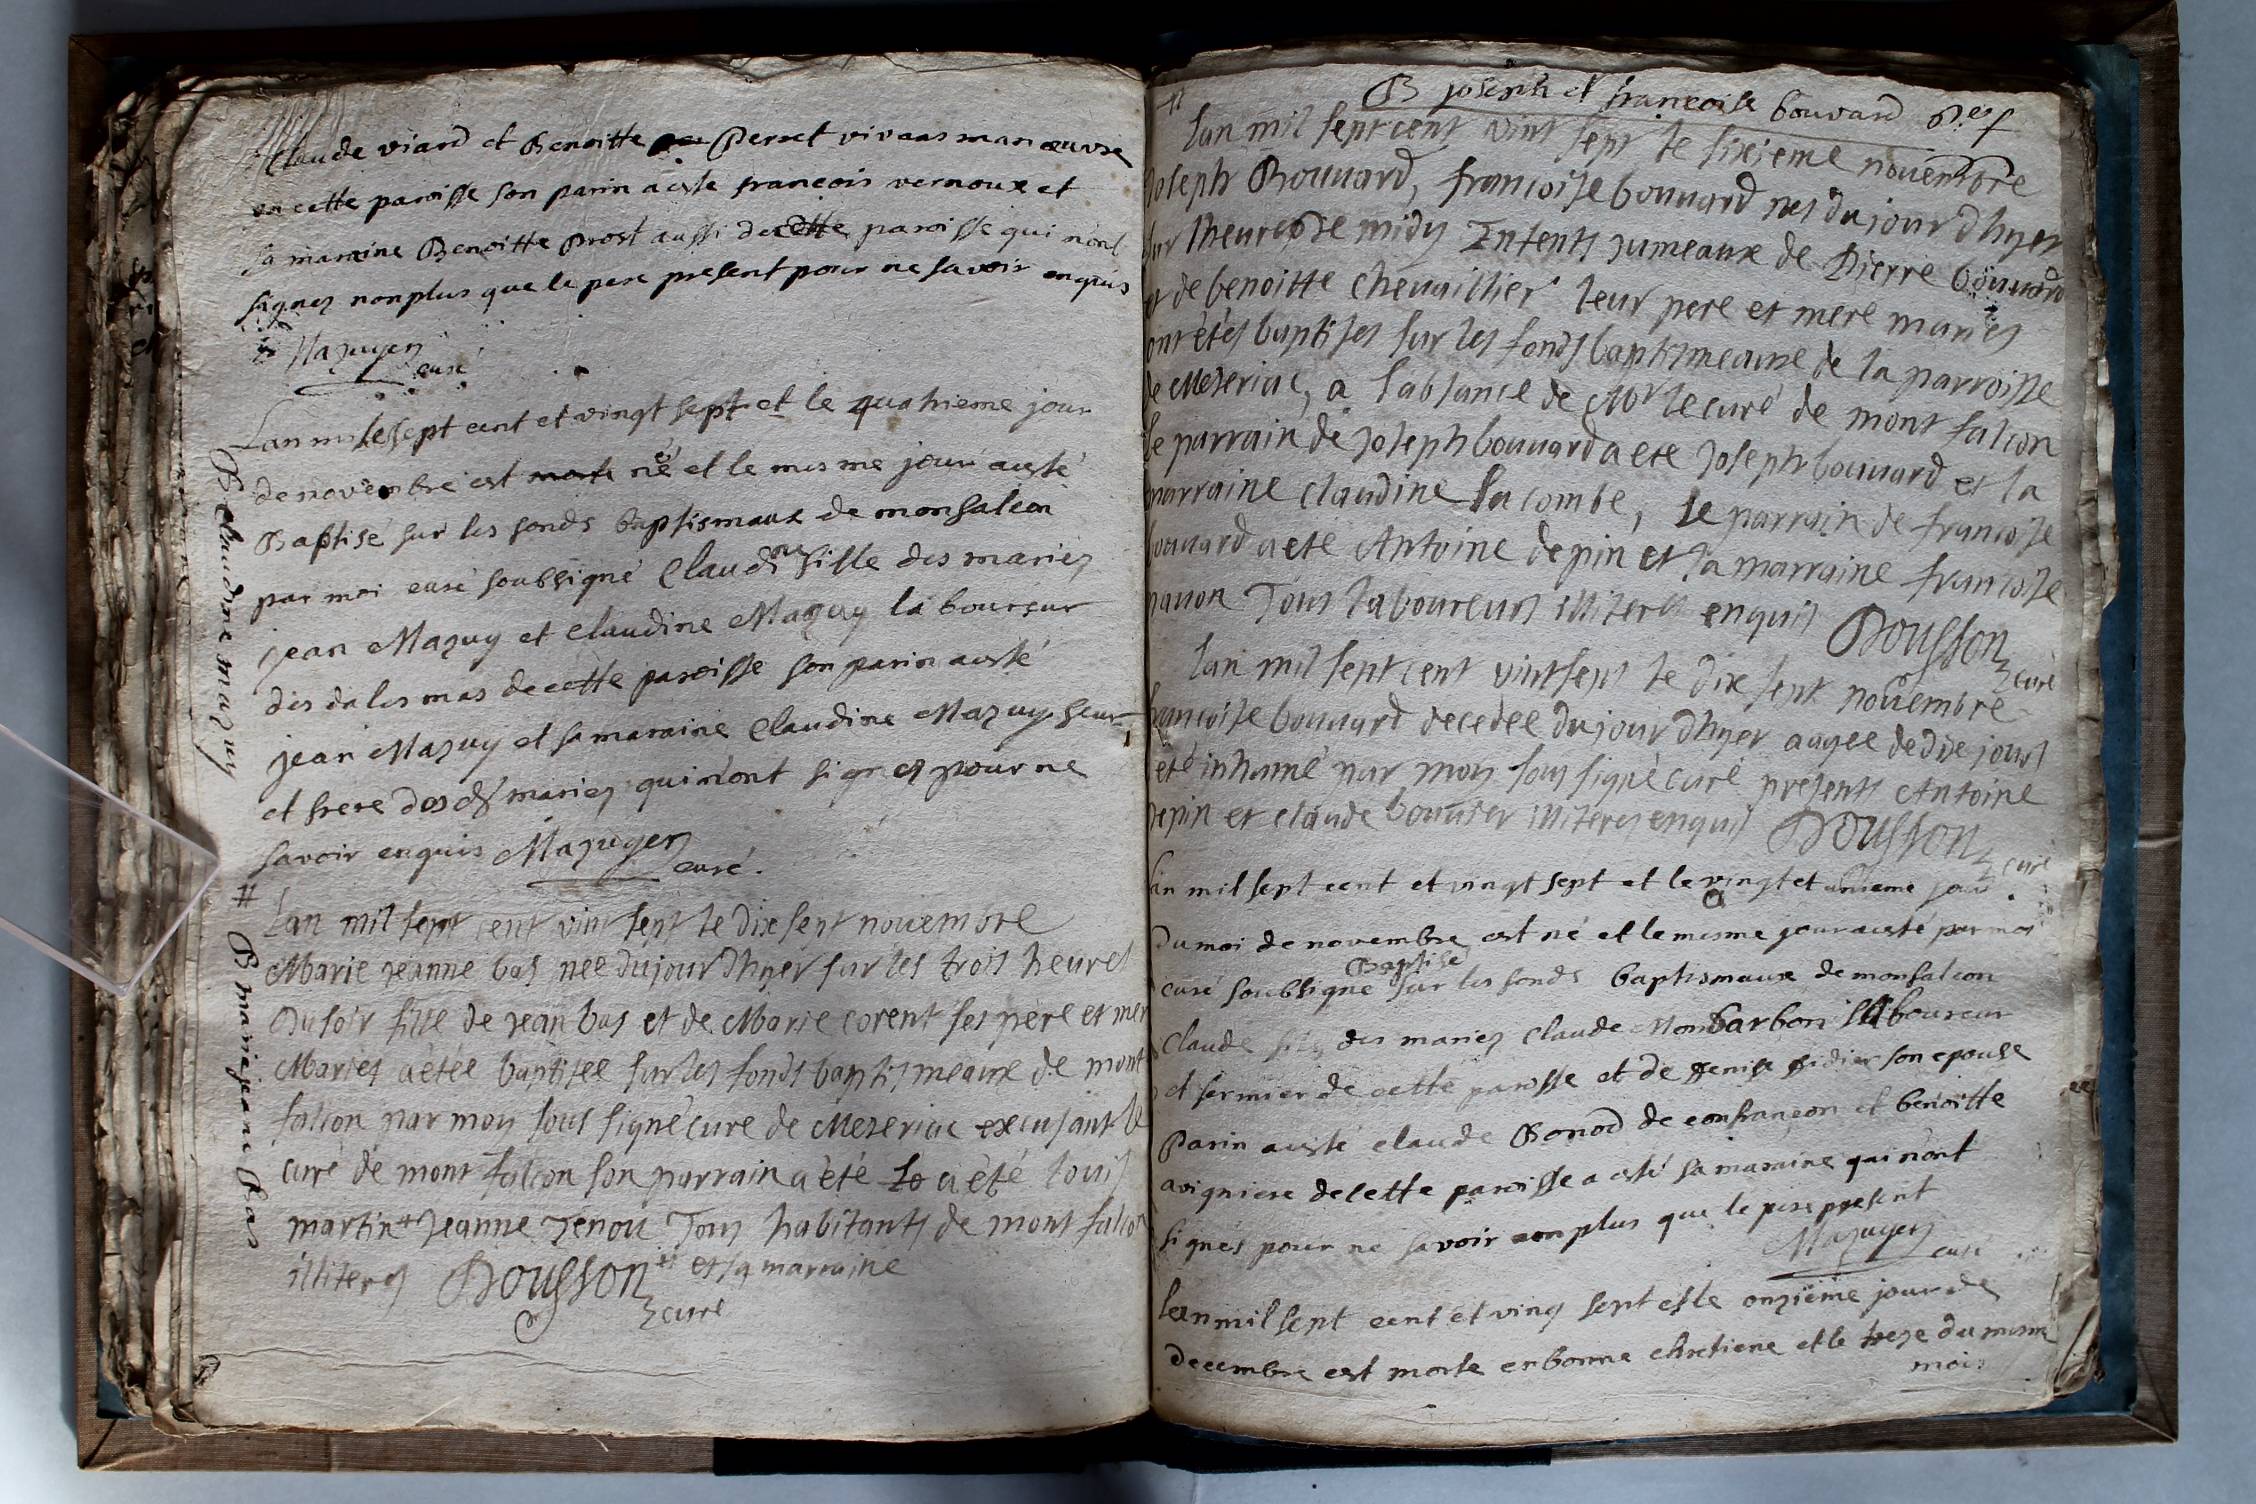 Claude viard et Benoitte Perret vivans manœuvre
en cette paroisse son parin a esté francois vernoux et
sa maraine Benoitte Prost aussi de cette paroisse qui nont
signez non plus que le pere present pour ne savoir enquis
Mazuyer
curé
B claudine mazuy
Lan mil sept cent et vingt sept et le quatrieme jour
de novembre est né et le mesme jour a esté
Baptisé sur les fonds baptismaux de monfalcon
par moi curé soubsigné Claudine fille des mariez
jean Mazuy et Claudine Mazuy laboureur
des mas de cette paroisse son parin a esté
jean Mazuy et sa maraine Claudine Mazuy seur
et frere des d mariez qui n'ont signez pour ne
savoir enquis Mazuyer
curé.
# B marie jeane Bas
Lan mil sept cent vint sept le dix sept nouembre
Marie jeanne bas née du jour dhyer sur les trois heures
du soir fille de jean bas et de Marie corent ses pere et mer
Mariez a étée baptisee sur les fonds baptismeaux de mont
falcon par moy sous signé curé de Mezeriac excusant le
curé de mont falcon son parrain a été a été louis
martin # jeanne Tenou Tous habitants de mont falcon
illiteres Bousson # et sa marraine
curé
B joseph et francoise bouvard
Lan mil sept cent vint sept le sixieme nouembre
joseph Bouuard, francoise bouuard nes du jour dhyer
sur lheure de midy Enfents jumeaux de Pierre bouuard
et de benoitte cheuaillier leur pere et mere mariés
ont étés baptises sur les fonds baptismeaux de la parroisse
de Mezeriac, a labsance de Mr le curé de mont falcon
le parrain de joseph bouuard a eté joseph bouuard et la
marraine claudine lacombe, le parrain de francoise
bouuard a eté Antoine depin et la marraine francoise
pauon Tous laboureurs illiteres enquis Bousson
curé
lan mil sept cent vint sept le dix sept nouembre
francoise bouuard decedée du jour dhyer aagée de dix jours
a eté inhumé par moy sous signé curé presents Antoine
depin et claude illiteres enquis Bousson
curé
Lan mil sept cent et vingt sept et le vingt et unieme jour
du moi de novembre est né et le mesme jour a esté par moi
curé soubsigné Baptisé sur les fonds baptismaux de monfalcon
Claude fils des mariez Claude Monbarbon laboureur
et fermier de cette paroisse et de Denise didier son epouse
Parin a esté claude Bonod de confrançon et benoitte
avigniere de cette paroisse a esté sa maraine qui n'ont
signés pour ne savoir non plus que le pere present
Mazuyer
curé
lan mil sept cent et ving sept et le onzieme jour de
decembre est morte en bonne chretiene et le treze du mesme
mois